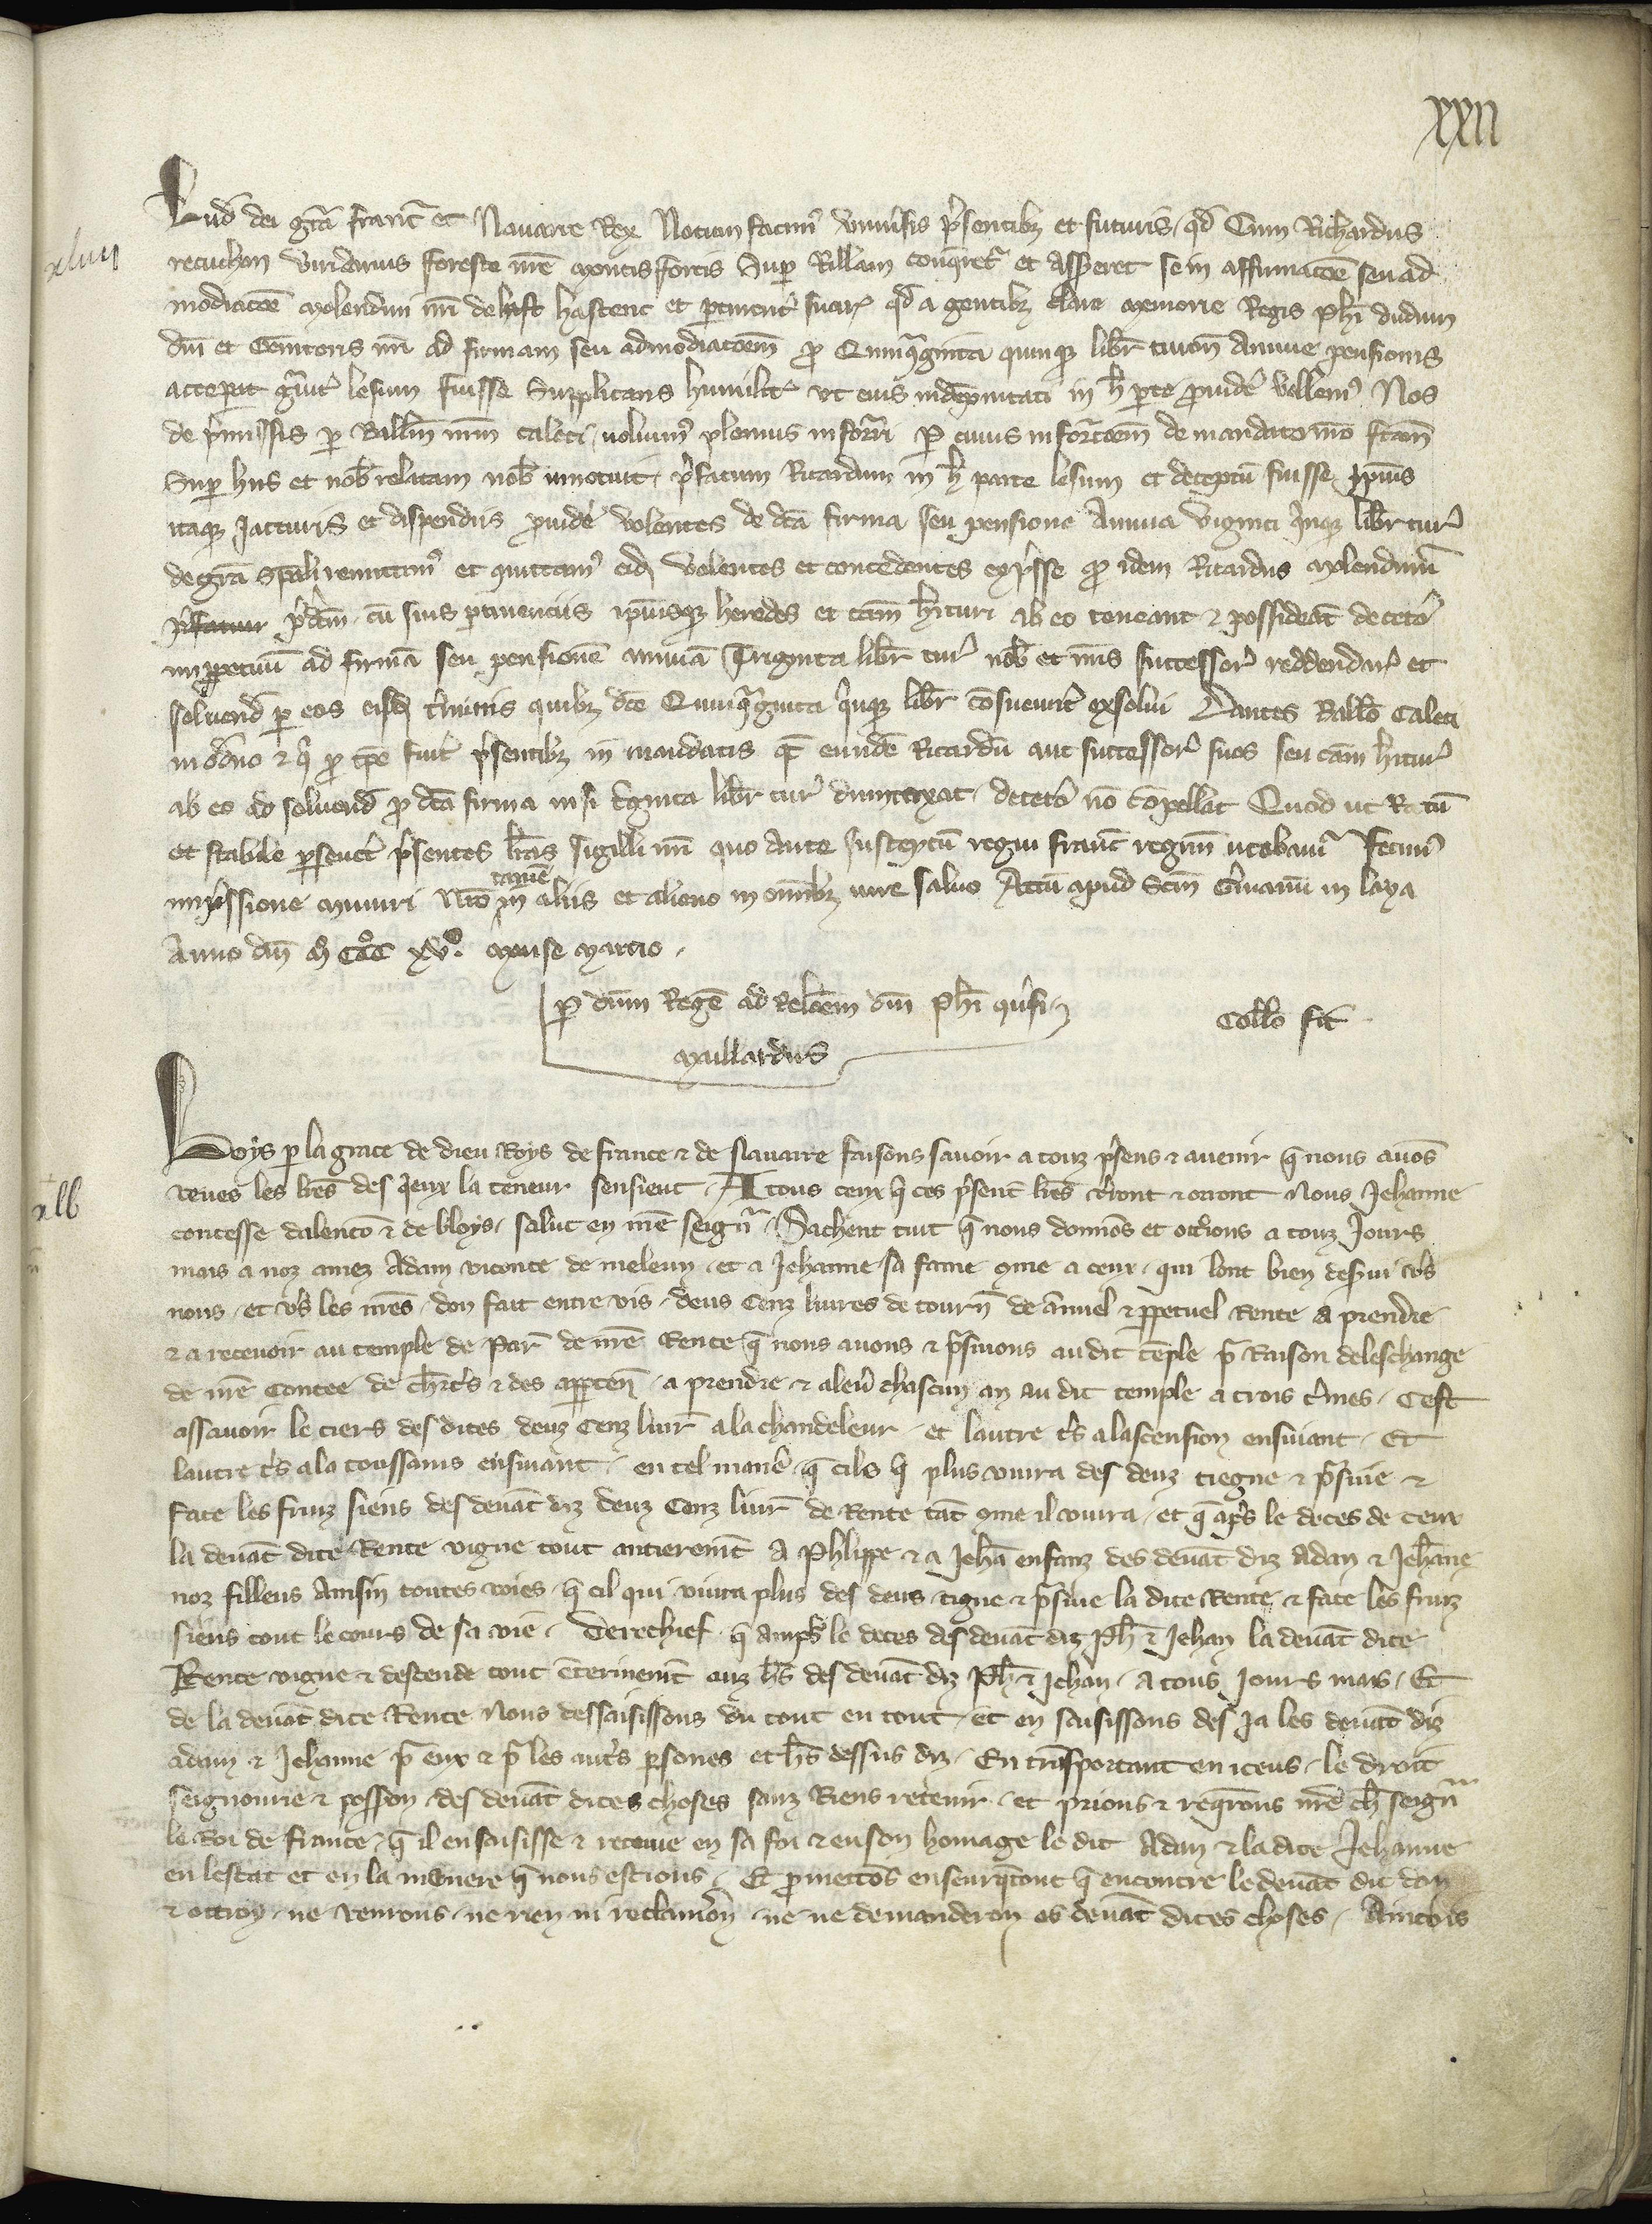 xxii
Lud dei gra franc et Navarre Rex Notum facim universis presentibz et futuris qd Cum Richardus
recuchon viridarius foreste nre montisfortis Super Rillam conqueret et assereret se in affirmacoe seu ad
modiacoe molendini nri de hastenc et pertinent suar qd a gentibz clare memorie Regis Phi dudum
dni et Genitoris nri ad firmam seu admodiacoem pro Quinquaginta quinqz libr turon Annue pensionis
acceperat gravit lesum fuisse Supplicans humilit ut eius indempnitati in h parte providere vellem Nos
de premissis per Ballm nrm caleti voluim plenius informari Per cuius informacoem de mandato nro fcam
Super hiis et nob relatam nob innotuit prefatum Ricardum in h parte lesum et deceptu fuisse ipsius
itaqz Jacturis et dispendiis providere volentes de dca firma seu pensione Annua viginti quinqz libr tur
de gra spali remittim et quittam eid volentes et concedentes expresse quod idem Ricardus molendinu
prefatum predcm cu suis pertinenciis ipsiusqz heredes et cam hituri ab eo teneant & possideat de cetero
imperpetuu ad firma seu pensione annua Triginta libr tur nob et nris successor reddendar et
solvend per eos eisd terminis quibz dce Quinquaginta quinqz libr consuever exsolvi Dantes Ballo Caleti
moderno & qui pro tpe fuit presentibz in mandatis qt eunde Ricardu aut successor suos seu cam hitur
ab eo ad solvend pro dca firma nisi triginta libr tur dumtaxat de cetero no compellat Quod ut Ratu
et stabile perseveret presentes lras sigilli nri quo ante susceptu regni franc regimen utebamur fecim
impressione muniri Nro in
tame
aliis et alieno in omibz iure salvo Actu apud Scm Germanu in laya
Anno dni M CCC xv. mense marcio
per dnm Rege ad relacoem dni Phi
maillardus
Collo fit
xliiii
Loys par la grace de dieu Roys de france & de Navarre faisons savoir a touz presens & avenir que nous avos
veues les lres des queux la teneur sensient A tous ceux qui ces present lres verront & orront Nous Jehanne
contesse dalenco & de bloys salut en nre seign Sachent tuit que nous donnos et ottrions a touz Jours
mais a noz amez Adam viconte de meleun et a Jehanne sa fame come a ceux qui lont bien deservi vers
nous et vers les nres don fait entre vis deus Cenz livres de tourn de annuel & perpetuel Rente a prendre
& a recevoir au temple de Par de nre Rente que nous avons & presivons au dit temple par Raison deleschange
de nre Contee de chrtes & des apparten a prendre & a lever chascun an au dit temple a trois termes Cest
assavoir le tiers des dites deuz Cenz livr a la chandeleur et lautre ters a lascension ensivant Et
lautre ters a la toussains ensivant en tel manere que cils qui plus vivra des deuz tiegne & presive &
face les fruiz siens des devat diz deuz Cenz livr de Rente tat come il vivra et que apres le deces de ceux
la devat dite Rente vigne tout antierement A Phlippe & a Jeha enfanz des devat diz Adan & Jehane
noz filleus Ainsin toutes voies que cil qui vivra plus des deus tigne & presive la dite Rente & face les fruiz
siens tout le cours de sa vie Derechief que ampres le deces des devat diz Ph & Jehan la devat dite
Rente vigne & descende tout enterinemt auz hrs des devat diz Ph & Jehan a tous Jours mais Et
de la devat dite Rente Nous dessaisissons du tout en tout et en saisissons des Ja les devat diz
adam & Jehanne par eux & par les autres persones et hrs dessus diz En transportant en iceus le droit
seignourie & posson des devat dites choses sanz Riens retenir et prions & requerons nre ch seign
le Roi de france que il en saisisse & recoive en sa foi & en son homage le dit Adan & la dite Jehanne
en lestat et en la manere que nous estions Et prometos enseurquetout que encontre le devat dit don
& ottroy ne venrons ne rien ni reclameron ne ne demanderon es devat dites choses Aincois
xlv